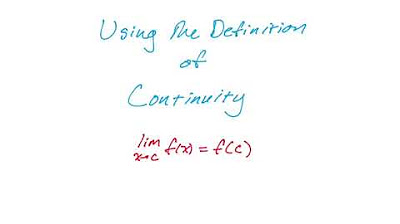 Using The Definition
of
Continuity
lim f(x) = f(c)
x→c